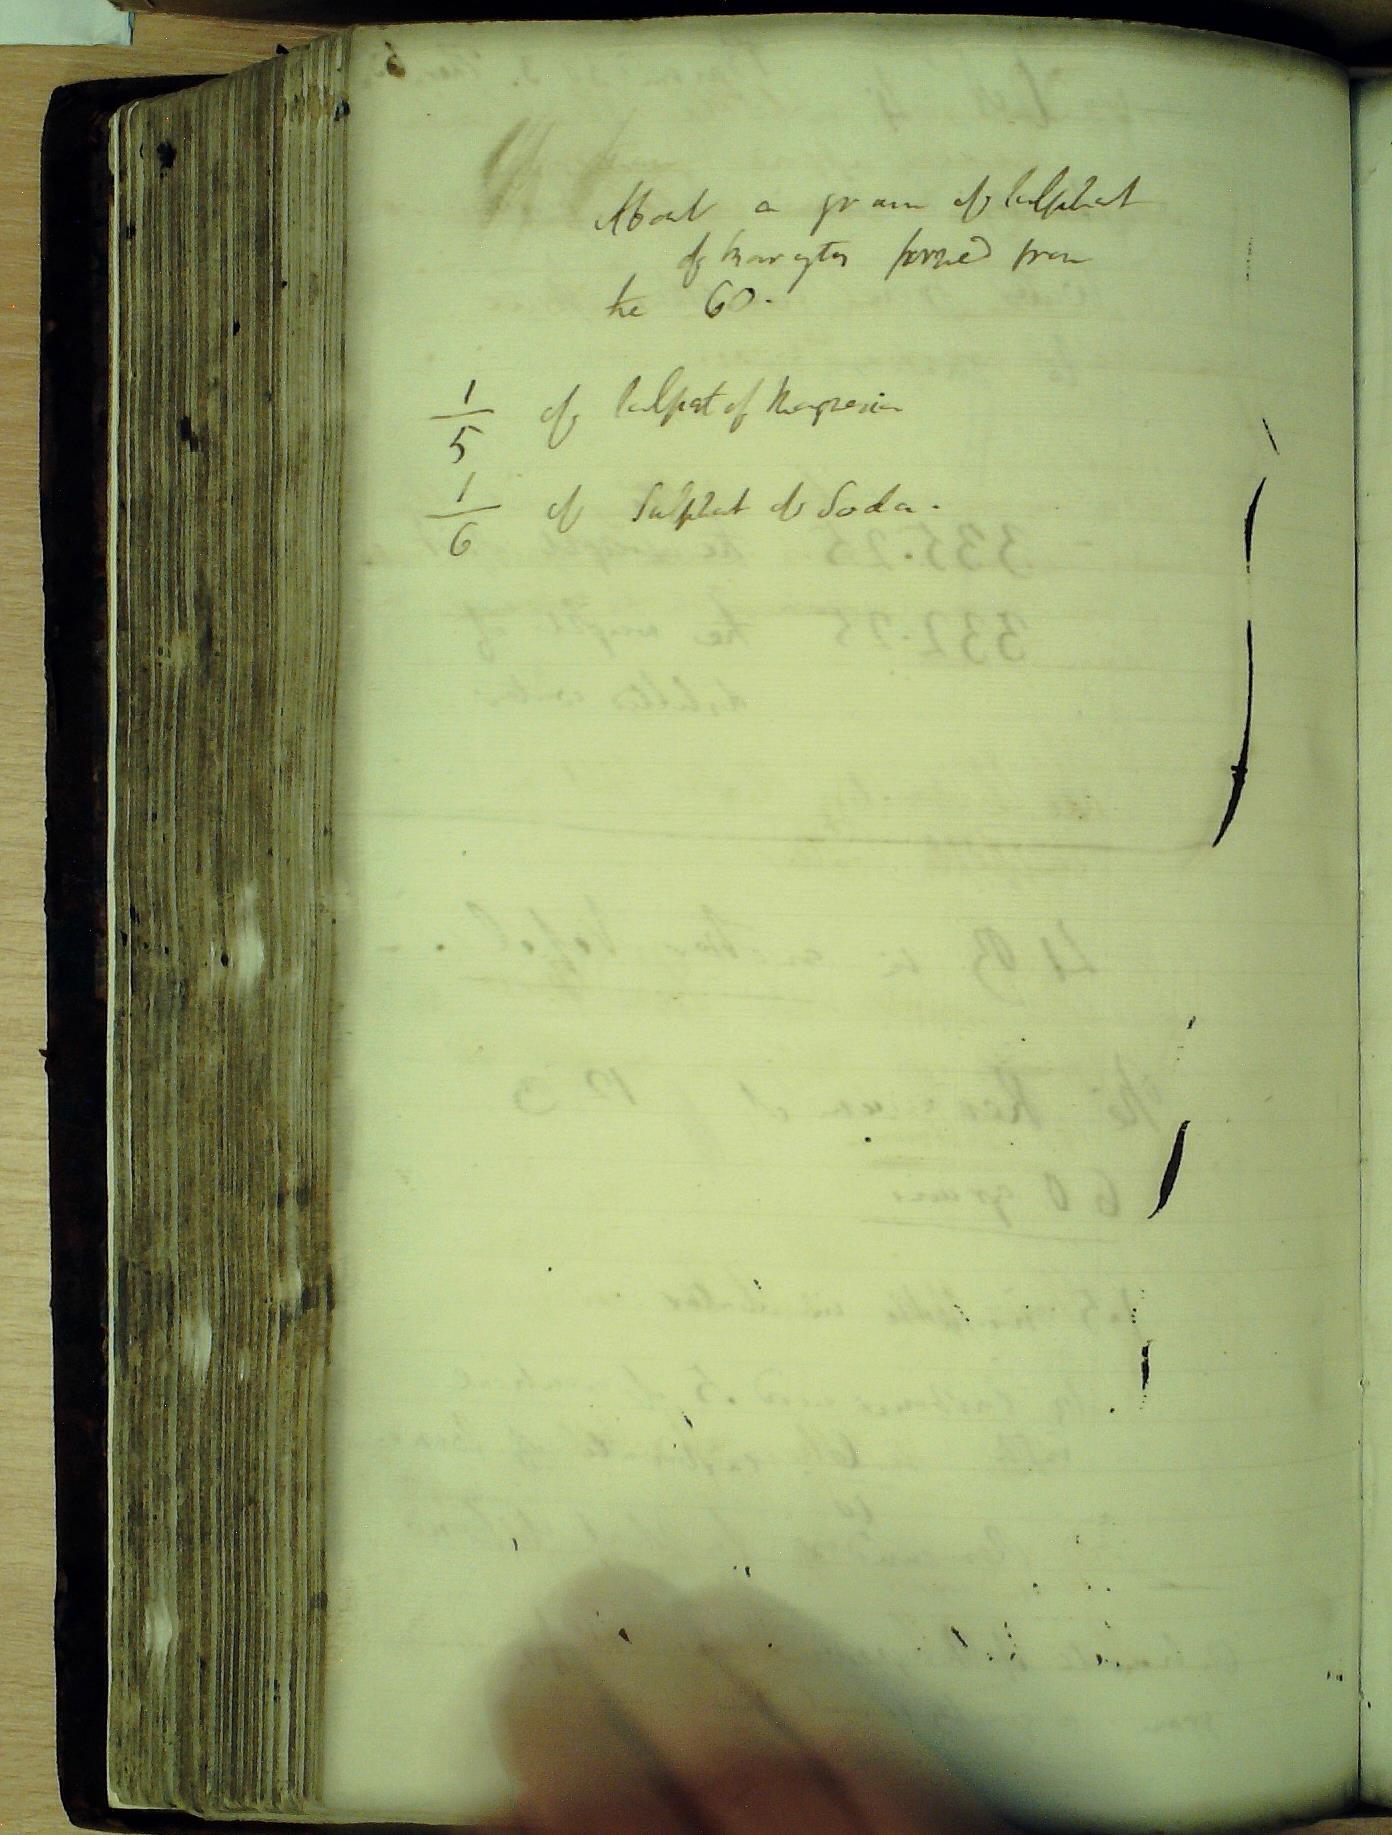 About a grain of Sulphat
of barytes formed from
the 60.
1/5 of Sulpat of Magnesia
1/6 of Sulphat of Soda.